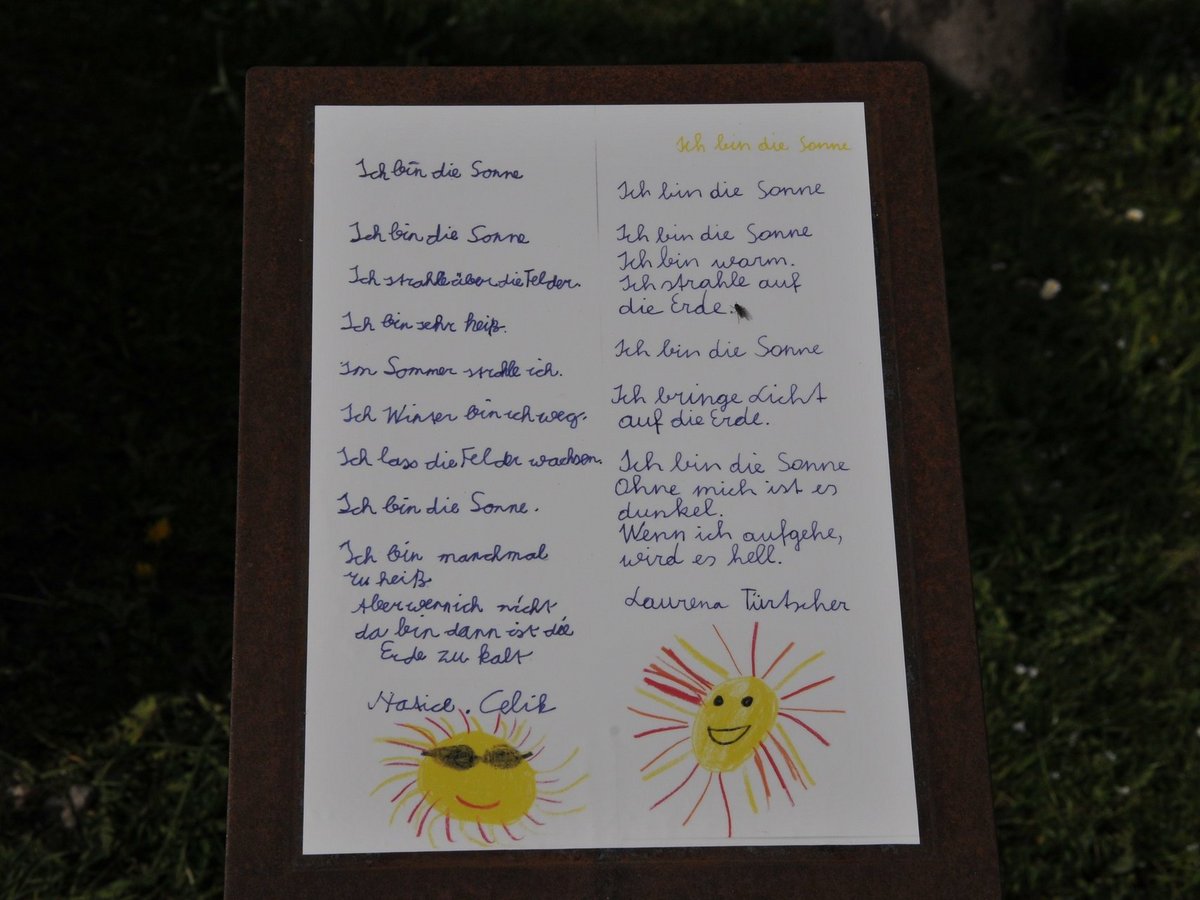 Ich bin die Sonne
Ich bin die Sonne
Ich strahle über die Felder.
Ich bin sehr heiß.
Im Sommer strahle ich.
Ich Winter bin ich weg.
Ich lass die Felder wachsen.
Ich bin die Sonne.
Ich bin manchmal
zu heiß
Aber wenn ich nicht
da bin dann ist die
Erde zu kalt
Celik
Ich bin die Sonne
Ich bin die Sonne
Ich bin die Sonne
Ich bin warm.
Ich strahle auf
die Erde.
Ich bin die Sonne
Ich bringe Licht
auf die Erde.
Ich bin die Sonne
Ohne mich ist es
dunkel.
Wenn ich aufgehe,
wird es hell.
Laurena Türtscher